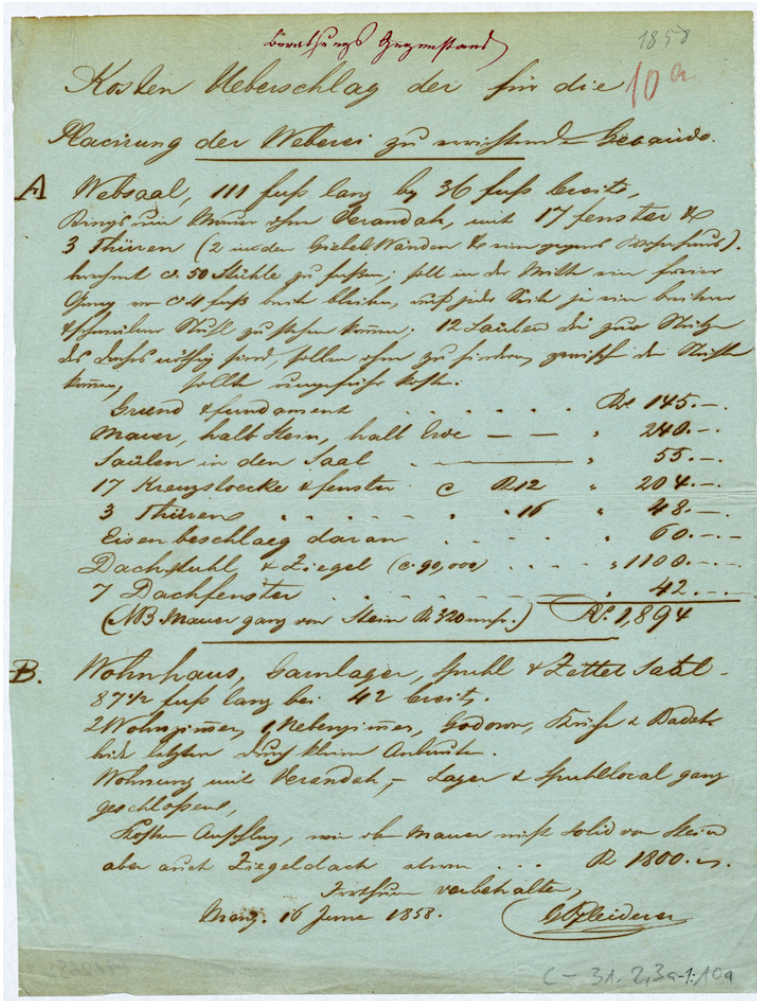 Berathungs Gegenstand
1858
10a
Kosten Ueberschlag der für die
Placirung der Weberei zu errichtende Gebäude.
A Websaal, 111 fuß lang by 36 fuß breit,
Rings um Mauer ohne Verandah, mit 17 fenster &
3 Thüren (2 in den Giebel Wänden & eine gegens Wohnhaus).
berechnet c. 50 Stühle zu faßen; soll in der Mitte ein freier
Gang von c 4 fuß breite bleiben, auf jeder Seite je ein breiterer
& schmälerer Stuhl zu stehen kommen; 12 Säulen die zur Stütze
des Daches nöthig sind, sollen ohne zu hindern zwischen die Stühle
kommen, sollte ungefähr kosten:
Grund & fundament . . . . . . Rs 145.-.
Mauer, halb Stein, halb Erde — — " 240.-.
Saülen in den Saal . ——— " 55.-.
17 Kreuzstoecke & fenster c R 12 " 204.-.
3 Thüren . . . . . . " 16 " 48.-.
Eisenbeschlaeg daran . . . . . " 60.-.-
Dachstuhl & Ziegel (c. 90,000) . . . . " 1100.-.
7 Dachfenster . . . . . . . 42.-.
(NB. Mauer ganz von Stein R 320 mehr.) Rs 1,894
B. Wohnhaus, Garnlager, Spuhl & Zettel Saal -
87 1/2 fuß lang bei 42 breit.
2 Wohnzimer, 1 Nebenzimer, Godown, Küche & Badek.
beide letztere durch kleine Anbauten.
Wohnung mit Verandah, - Lager & Spuhllocal ganz
geschloßen,
Kosten Anschlag, wie oben Mauer nicht solid von Stein
aber auch Ziegeldach etwa . . . R 1800.-.
Irrthum vorbehalten,
Mang. 16 June 1858.
GPfleiderer
C-31.2,3a-1:10a